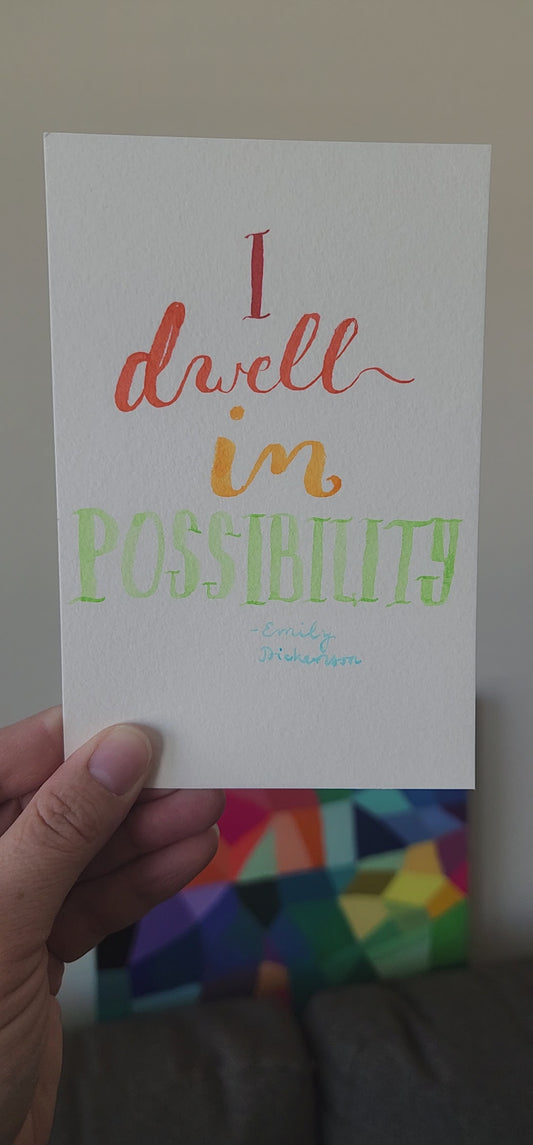 I
dwell
in
POSSIBILITY
-Emily
Dickenson